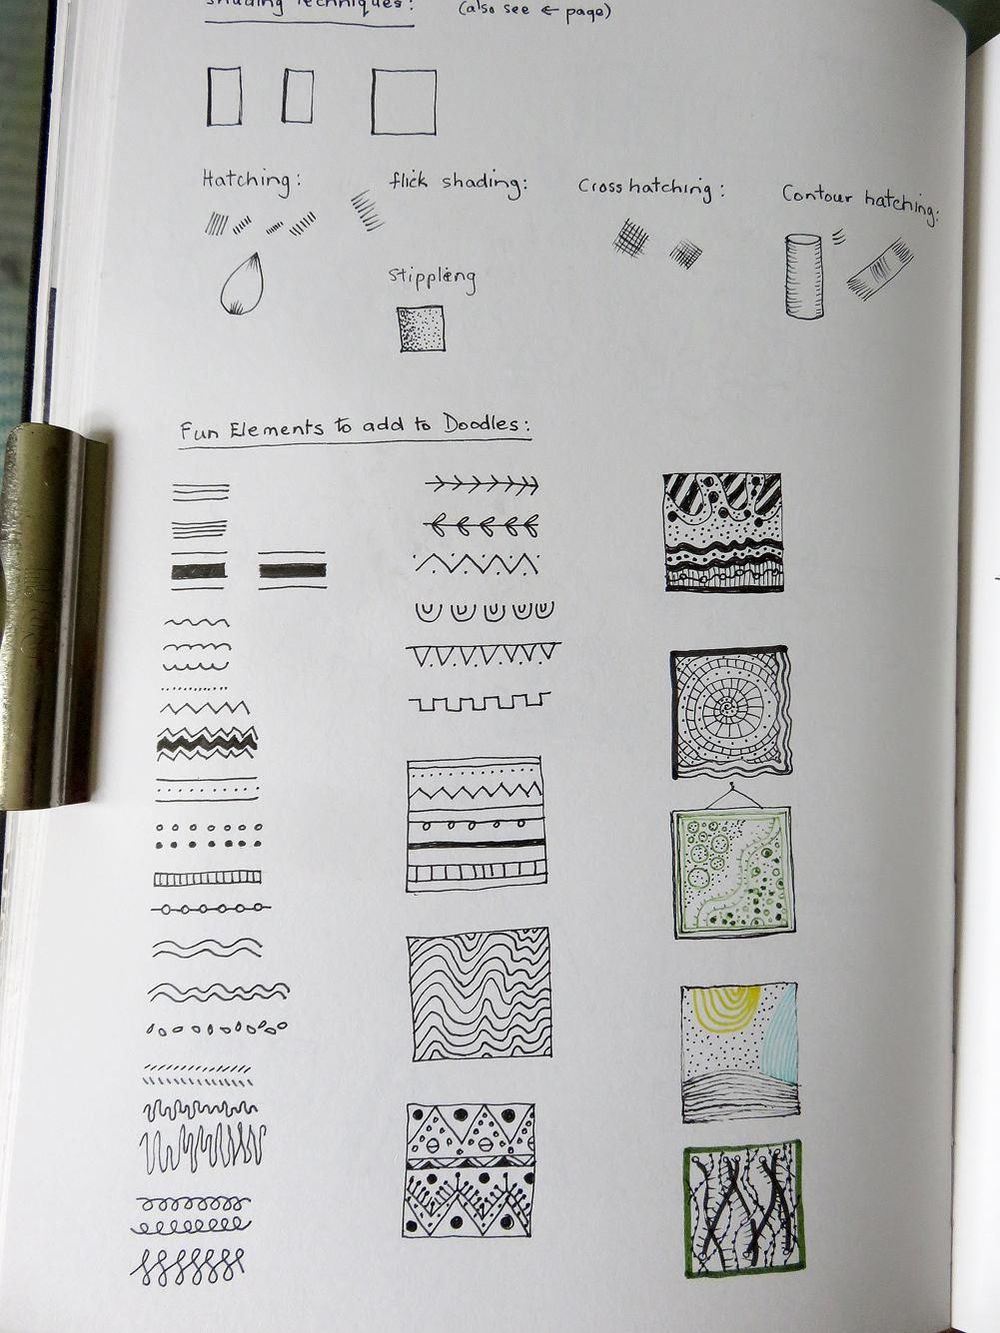 Shading Techniques: (also see ← page)
Hatching: flick shading: Cross hatching: Contour hatching:
Stippling
Fun Elements to add to Doodles: